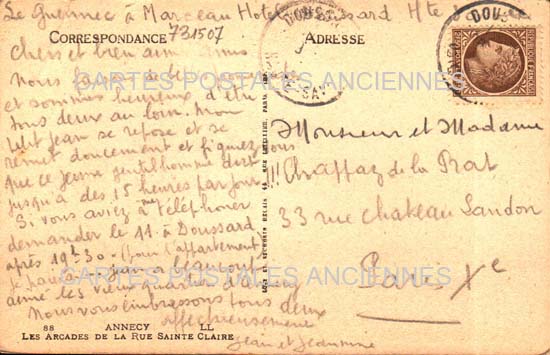 Le Guennec à Marceau Hotel Doussard Hte
CORRESPONDANCE
731507
ADRESSE
Chers et bien amis
nous
et sommes heureux d'être
tous deux au loin. Mon
petit Jean se repose et se
remet doucement et figurez vous
que ce jeune gentilhomme dort
jusqu'à des 15 heures par jour
Si vous aviez à me téléphoner
demander le 11 à Doussard
après 19h30. (pour l'appartement
je
Jean a beaucoup
aimé les vieux quartiers d'Annecy
Nous vous embrassons tous deux
affectueusement
Jean et Jeannine
Monsieur et Madame
Chappaz de la Prat
33 rue Chateau Landon
Paris Xe
CARTES POSTALES ANCIENNES
CARTES POSTALES ANCIENNES
88 ANNECY LL
LES ARCADES DE LA RUE SAINTE CLAIRE